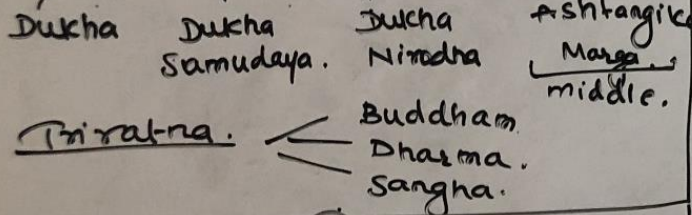 Dukha Dukha Dukha Ashtangika
Samudaya. Nirodha Marga.
middle.
Triratna. Buddham
Dharma.
Sangha.